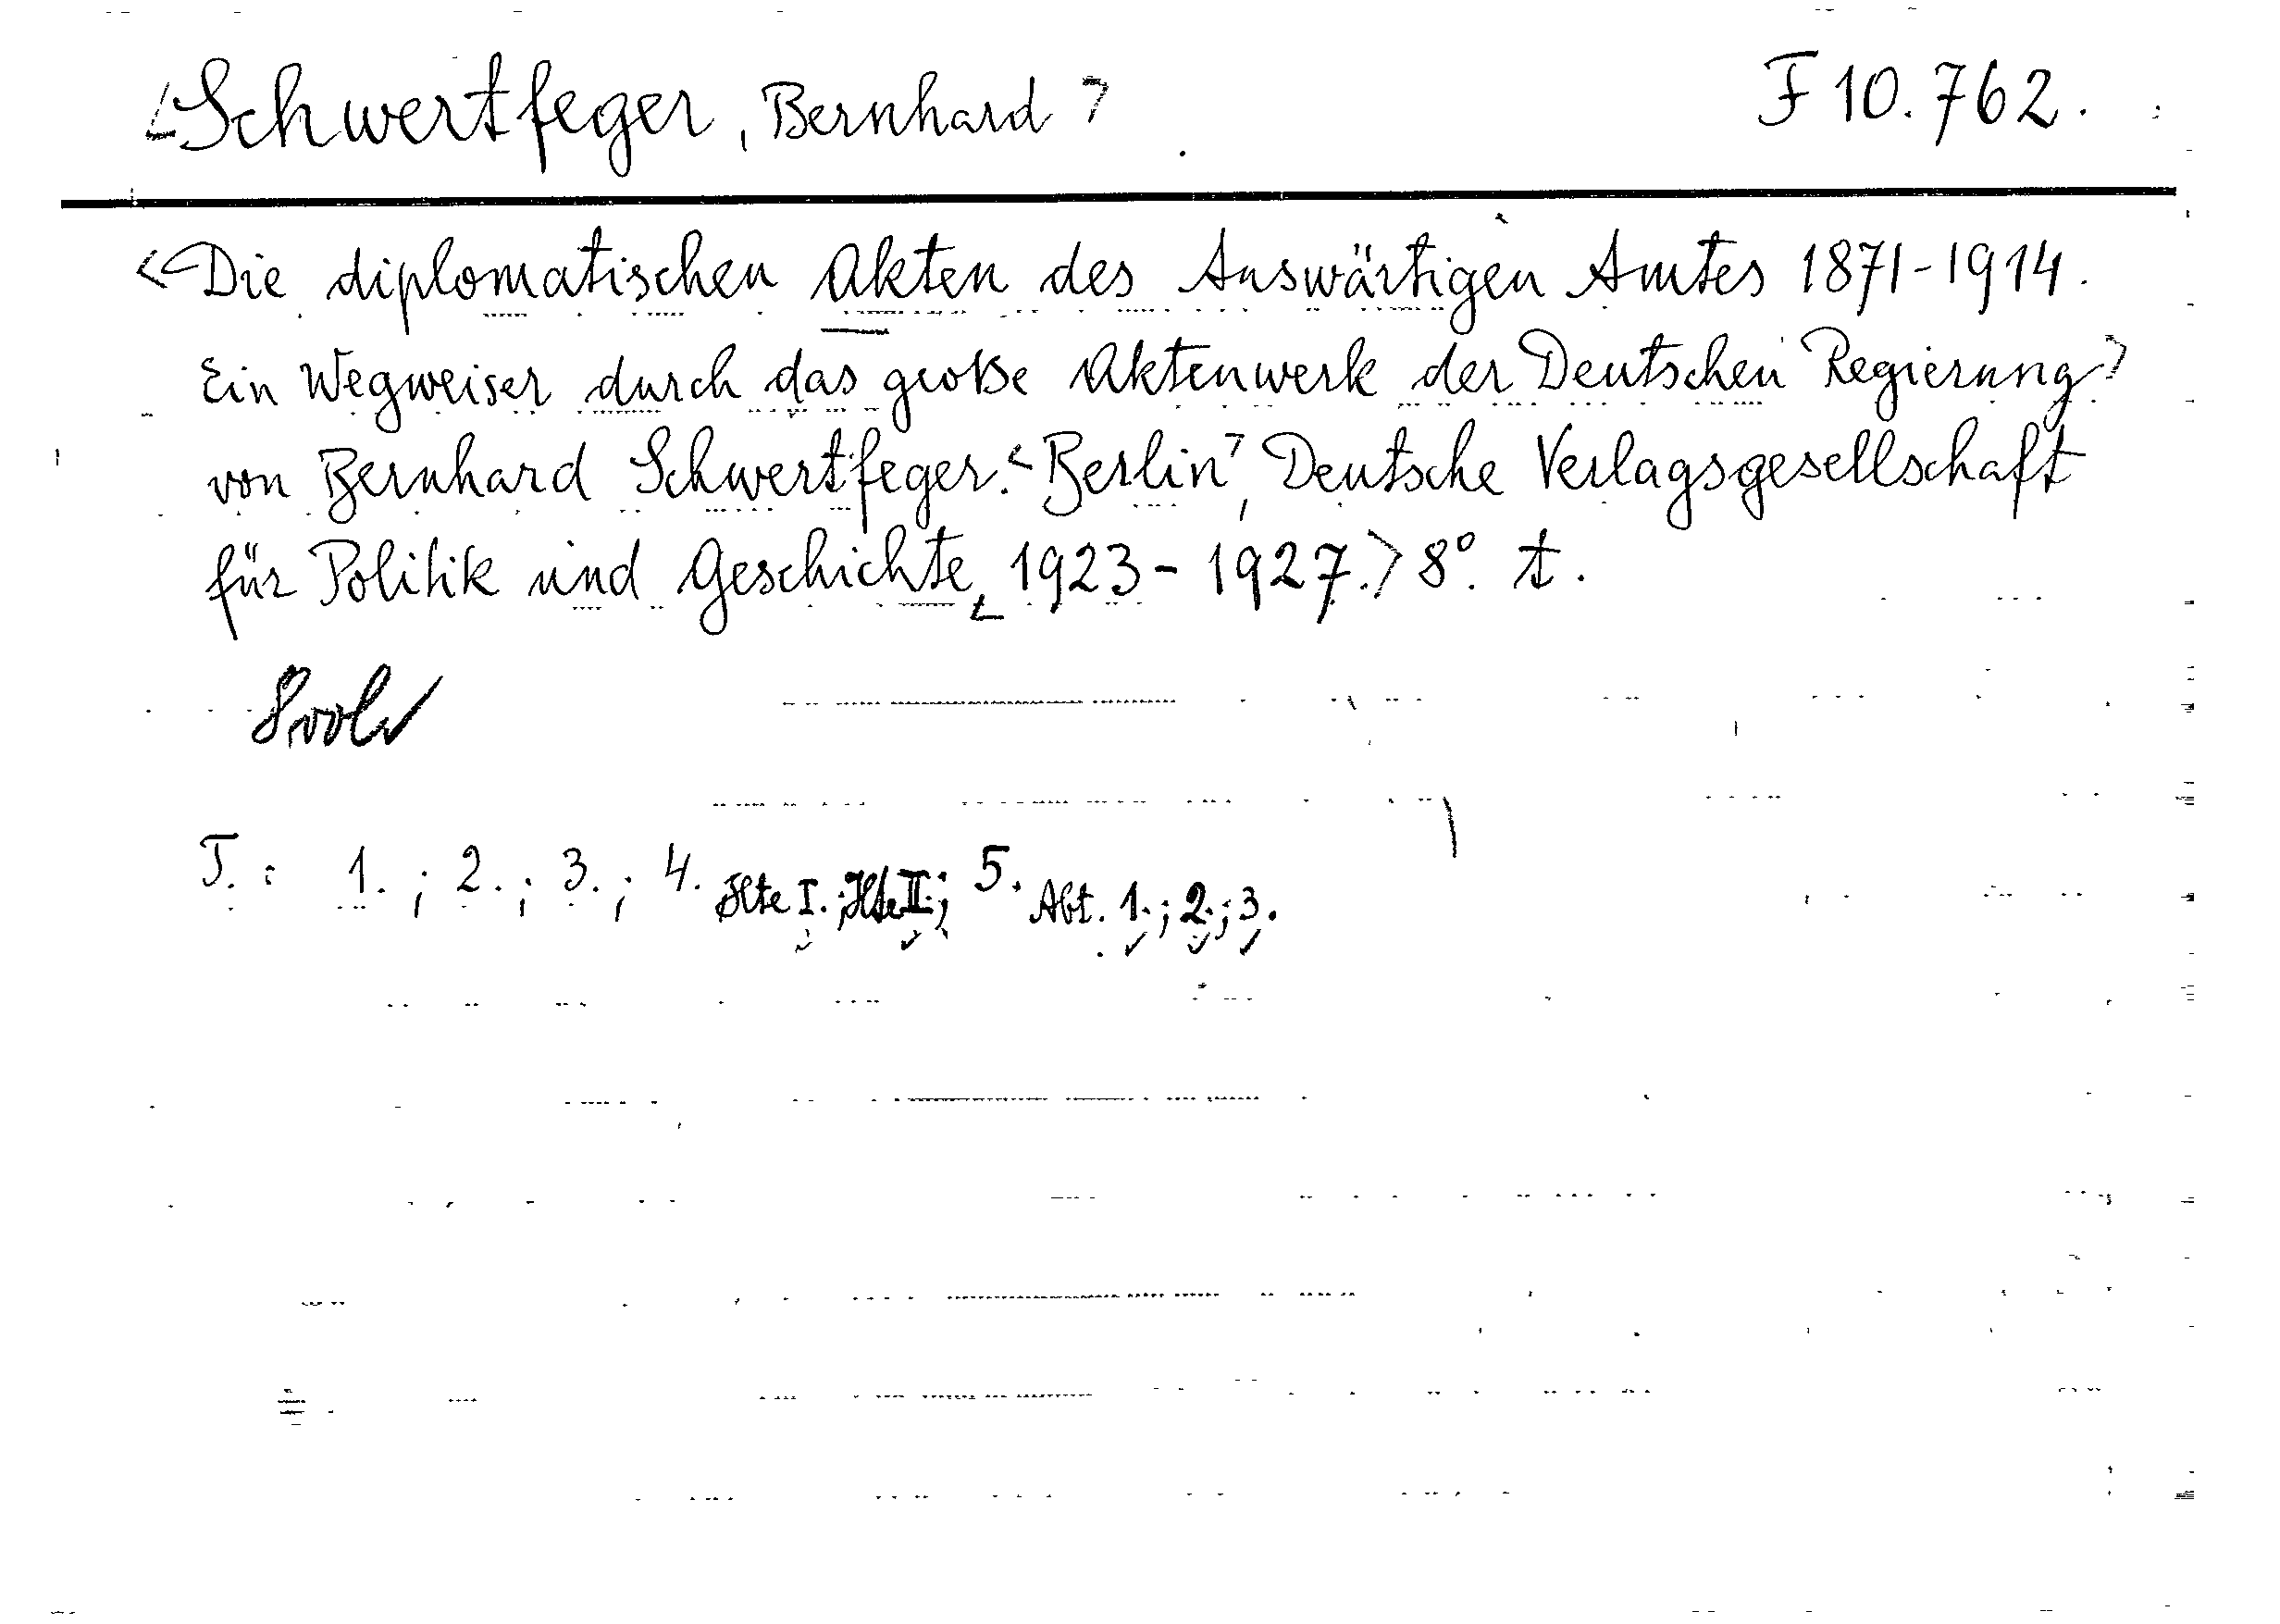 <Schwertfeger, Bernhard> F 10.762.
<Die diplomatischen Akten des Auswärtigen Amtes 1871-1914.
Ein Wegweiser durch das große Aktenwerk der Deutschen Regierung>
von Bernhard Schwertfeger. <Berlin>, Deutsche Verlagsgesellschaft
für Politik und Geschichte, <1923-1927.> 8°. t.
8 vol
T.: 1.; 2.; 3.; 4. Hlte I.; Hlte II.; 5. Abt. 1.; 2.; 3.